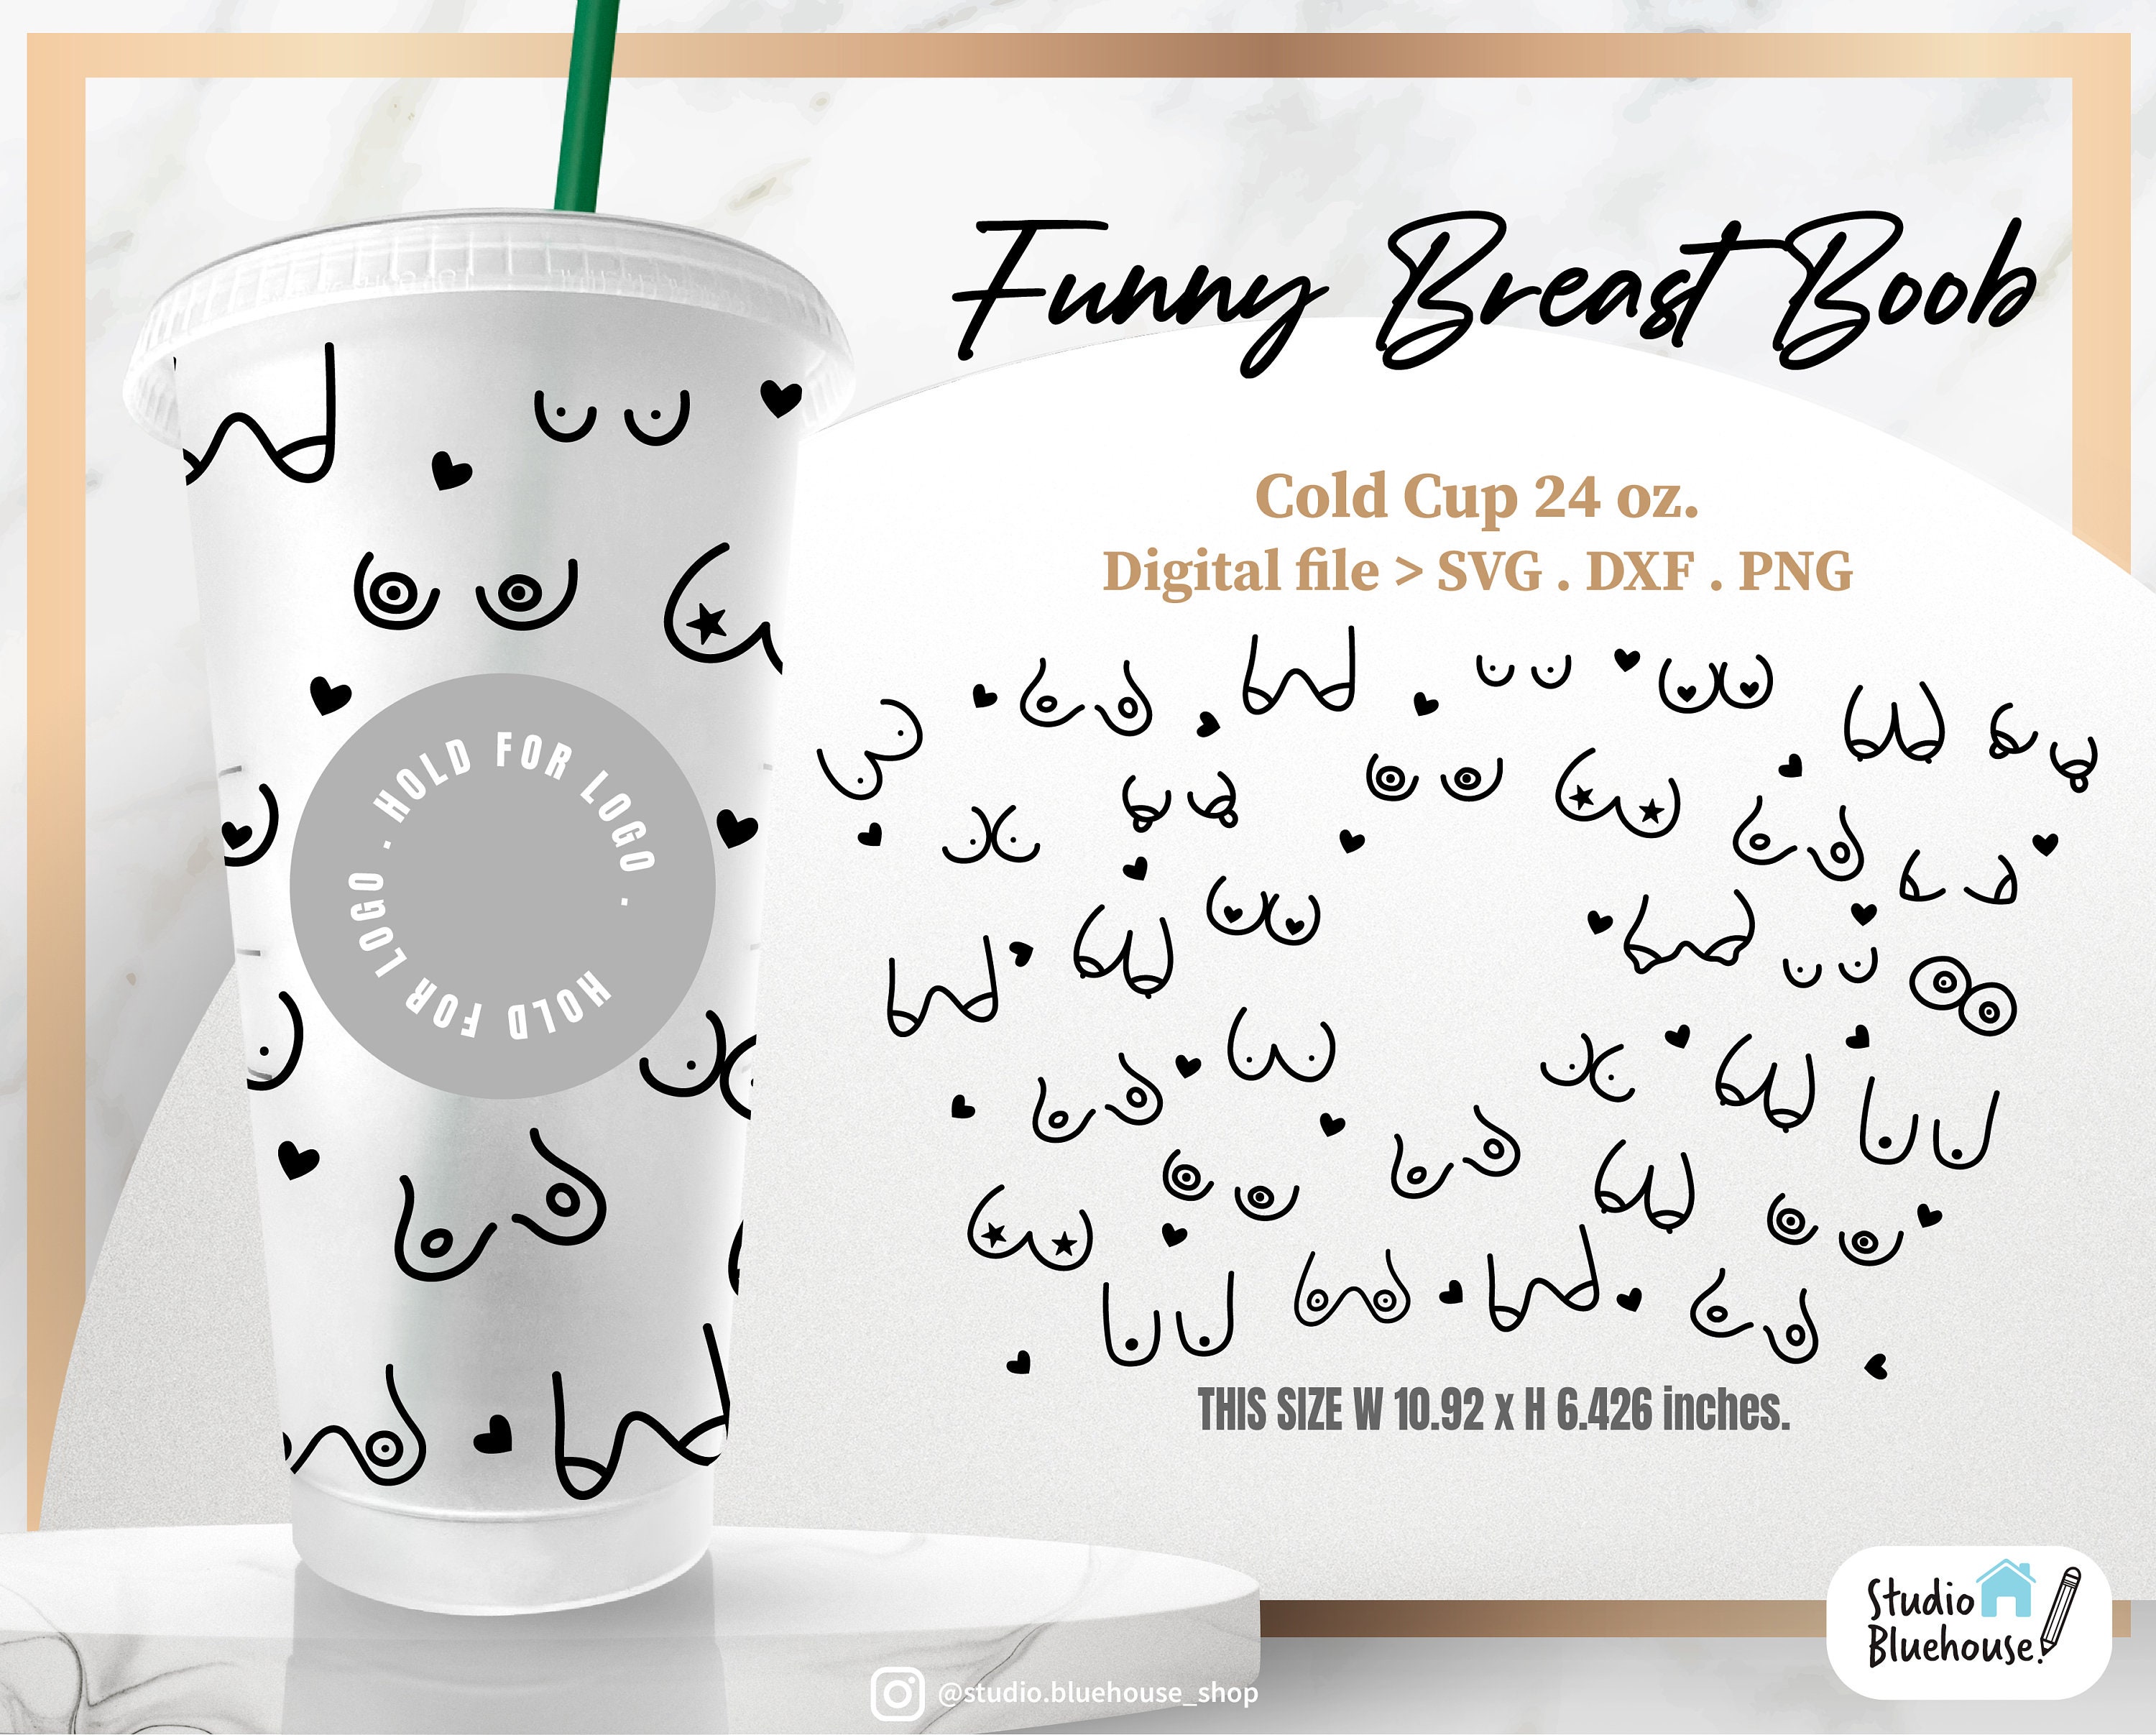 Funny Breast Boob
Cold Cup 24 oz.
Digital file > SVG . DXF . PNG
HOLD FOR LOGO . HOLD FOR LOGO .
THIS SIZE W 10.92 x H 6.426 inches.
Studio
Bluehouse.
@studio.bluehouse_shop